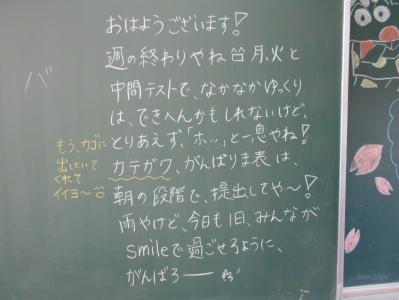 おはようございます!
週の終わりやね 月、火と
中間テストで、なかなかゆっくり
は、できへんかもしれないけど、
とりあえず、「ホッ」と一息やね!
カテガク、がんばりま表は、
朝の段階で、提出してや〜!
雨やけど、今日も1日、みんなが
smileで過ごせるように、
がんばろー
もう、カゴに
出しといて
くれて
イイヨ〜
バ